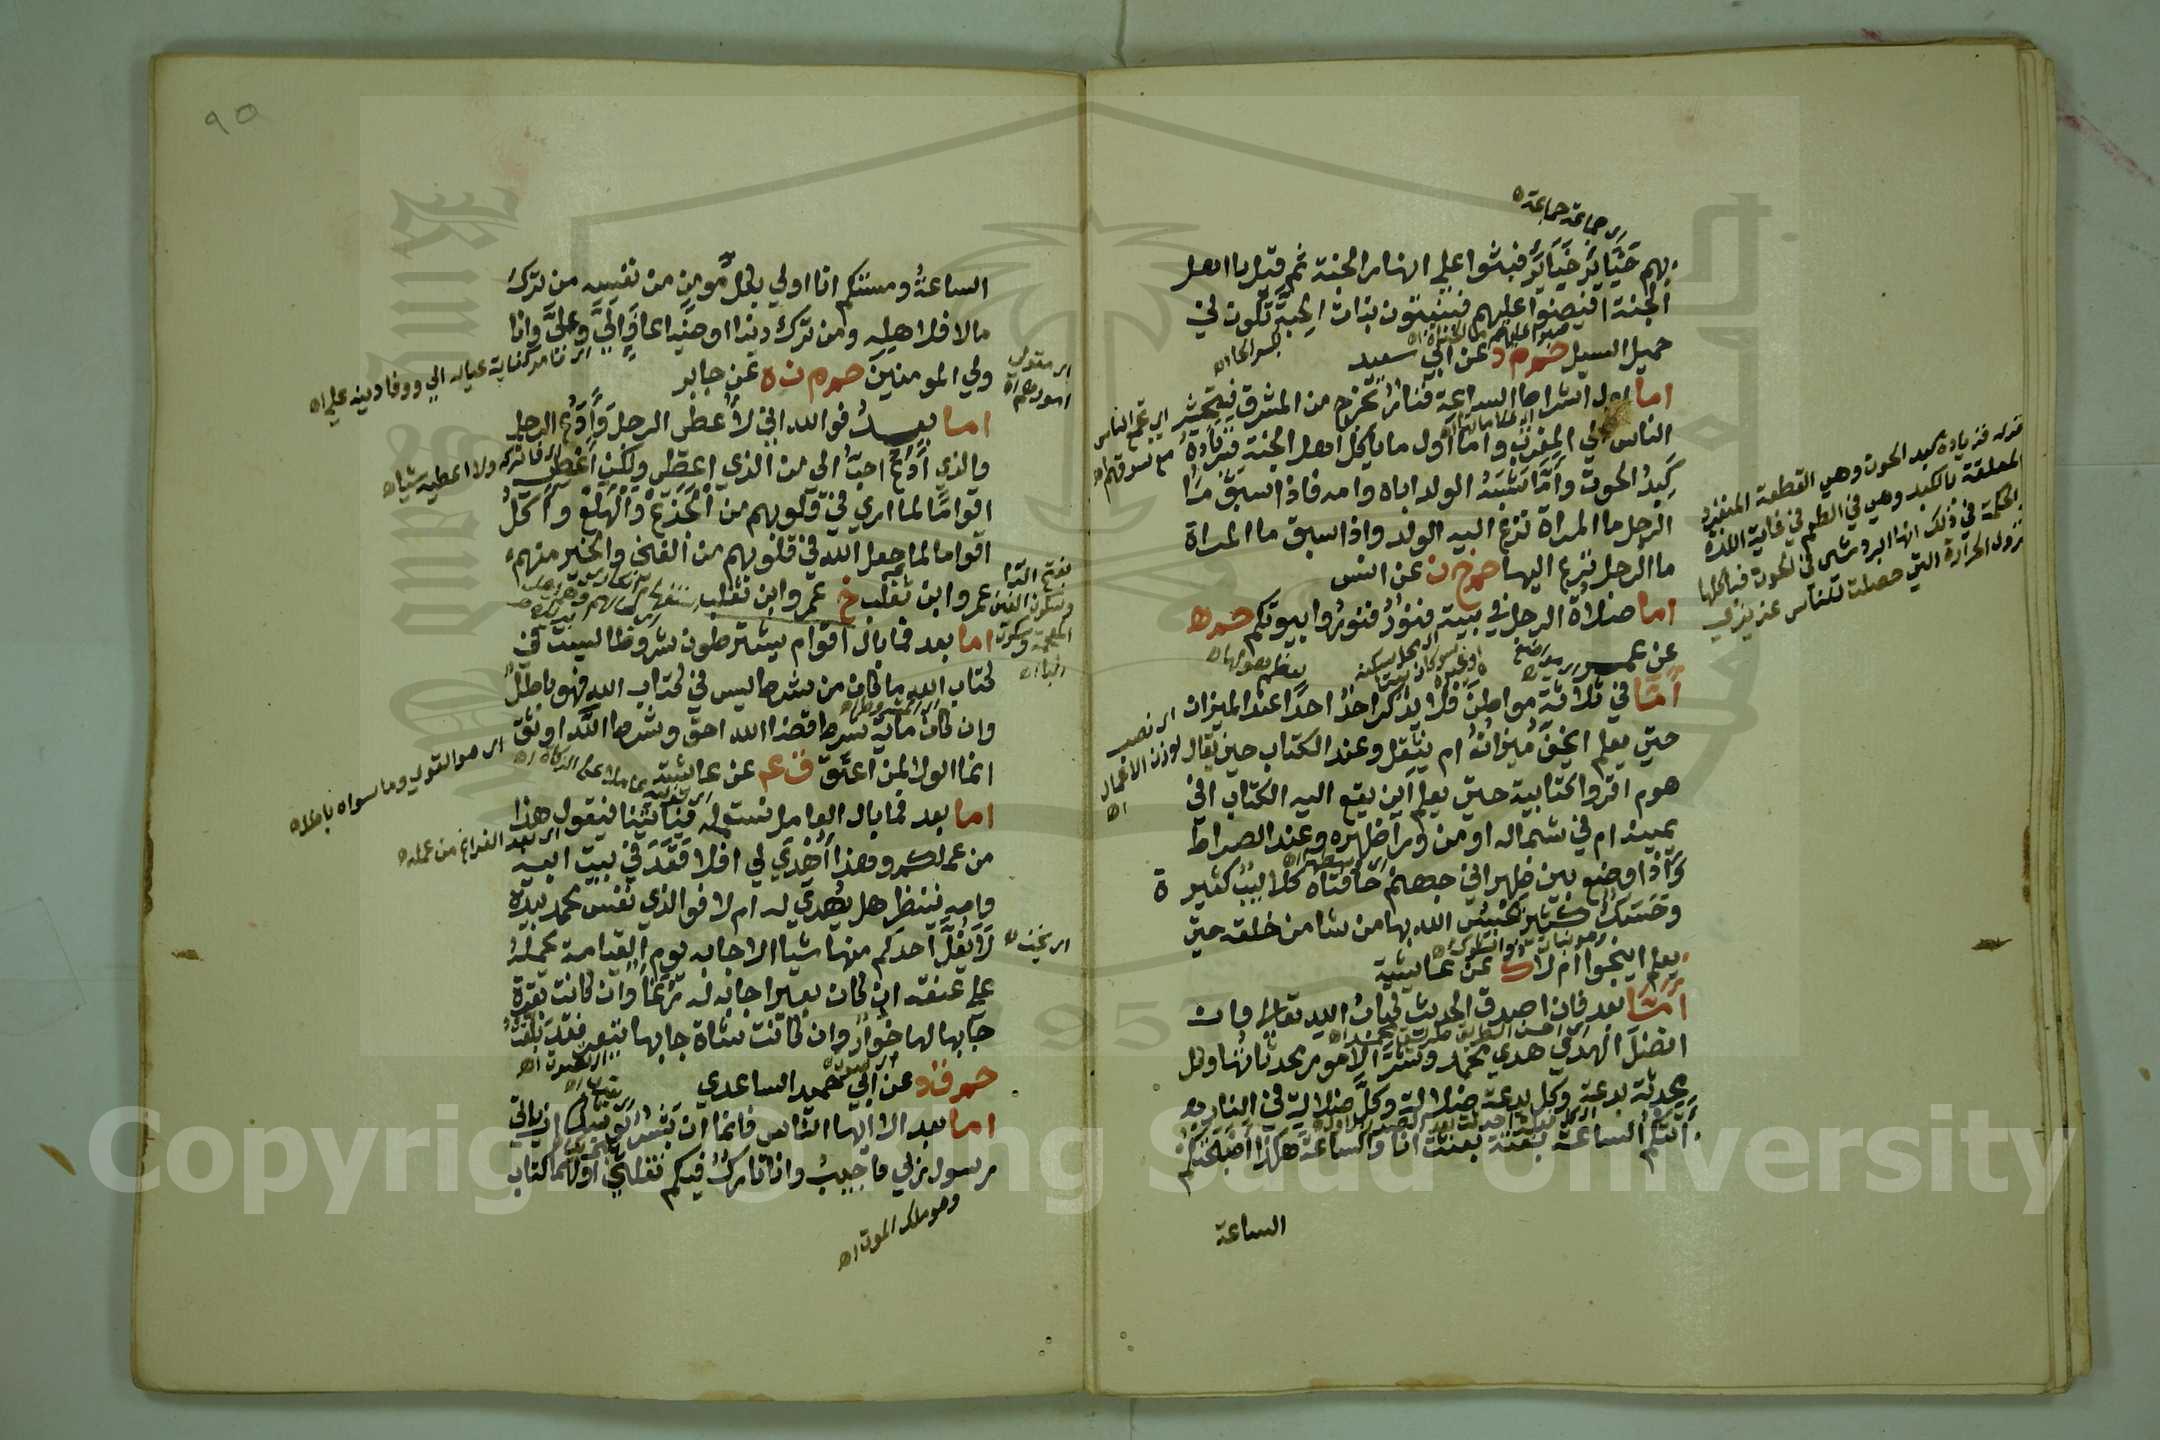 اى جماعة جماعة اه
بهم ضباير ضباير فبثوا علي انهار الجنة ثم قيل يا اهل
الجنة افيضوا عليهم فينبتون نبات الحبة تكون في
حميل السيل حم م ه عن ابي سعيد
اما اول اشراط الساعة فنار تخرج من المشرق فتحشر
الناس الي المغرب واما اول ما ياكل اهل الجنة فزيادة
كبد الحوت واما شبه الولد اباه وامه فاذا سبق ما
الرجل ما المراة نزع اليه الولد واذا سبق ما المراة
ما الرجل نزع اليها حم خ ن عن انس
اما صلاة الرجل في بيته فنور فنوروا بيوتكم حم ه
عن عمر
اما في ثلاثة مواطن فلا يذكر احد احدا عند الميزان
حتي يعلم ايخف ميزانه ام يثقل وعند الكتاب حين يقال
هوم اقروا كتابيه حتي يعلم اين يقع اليه الكتاب افي
يمينه ام في شماله او من ورا ظهره وعند الصراط
اذا وضع بين ظهراني جهنم حافتاه كلاليب كثيرة
وحسك كثير يحبس الله بها من شا من خلقه حتي
يعلم اينجوا ام لا عن عايشة
اما بعد فان اصدق الحديث كتاب الله تعالي وان
افضل الهدي هدي محمد وشر الامور محدثاتها وكل
محدثة بدعة وكل بدعة ضلالة وكل ضلالة في النار
اتتكم الساعة بغتة بعثت انا والساعة هكذا صبحتكم
الساعة
اى تجمع الناس
مع سوقهم اه
قوله فزيادة كبد الحوت وهي القطعة المنفردة
المعلقة بالكبد وهي في الطعم في غاية اللذة
والحكمة في ذلك انها ابرد شى في الحوت فباكلها
تزول الحرارة التي حصلت للناس
٩٥
الساعة ومستكم انا اولي بكل مومن من نفسه من ترك
مالا فلاهله ومن ترك دينا او ضياعا فالي وعلي وانا
ولي المومنين حم م ن ه عن جابر
اما بعد فوالله اني لاعطي الرجل وادع الرجل
والذي ادع احب الي من الذي اعطي ولكني اعطي
اقواما لما اري في قلوبهم من الجزع والهلع واكل
اقواما لما جعل الله في قلوبهم من الغني والخير منهم
عمرو ابن تغلب خ عمرو ابن تغلب
اما بعد فما بال اقوام يشترطون شروطا ليست في
كتاب الله ما كان من شرط ليس في كتاب الله فهو باطل
وان كان ماية شرط قضا الله احق وشرط الله اوثق
انما الولا لمن اعتق ق عم عن عايشة
اما بعد فما بال العامل نستعمله فياتينا فيقول هذا
من عملكم وهذا اهدي لي افلا قعد في بيت ابيه
وامه فينظر هل يهدي له ام لا فوالذي نفس محمد بيده
لا يغل احدكم منها شيا الا جا به يوم القيامة يحمله
علي عنقه ان كان بعيرا جا به له رغا وان كانت بقرة
جا بها لها خوار وان كانت شاة جا بها تيعر فقد بلغت
حم ق د عن ابي حميد الساعدي
اما بعد الا ايها الناس فانما انا بشر يوشك ان ياتي
رسول ربي فاجيب وانا تارك فيكم ثقلين اولهما كتاب
وهو ملك الموت اه